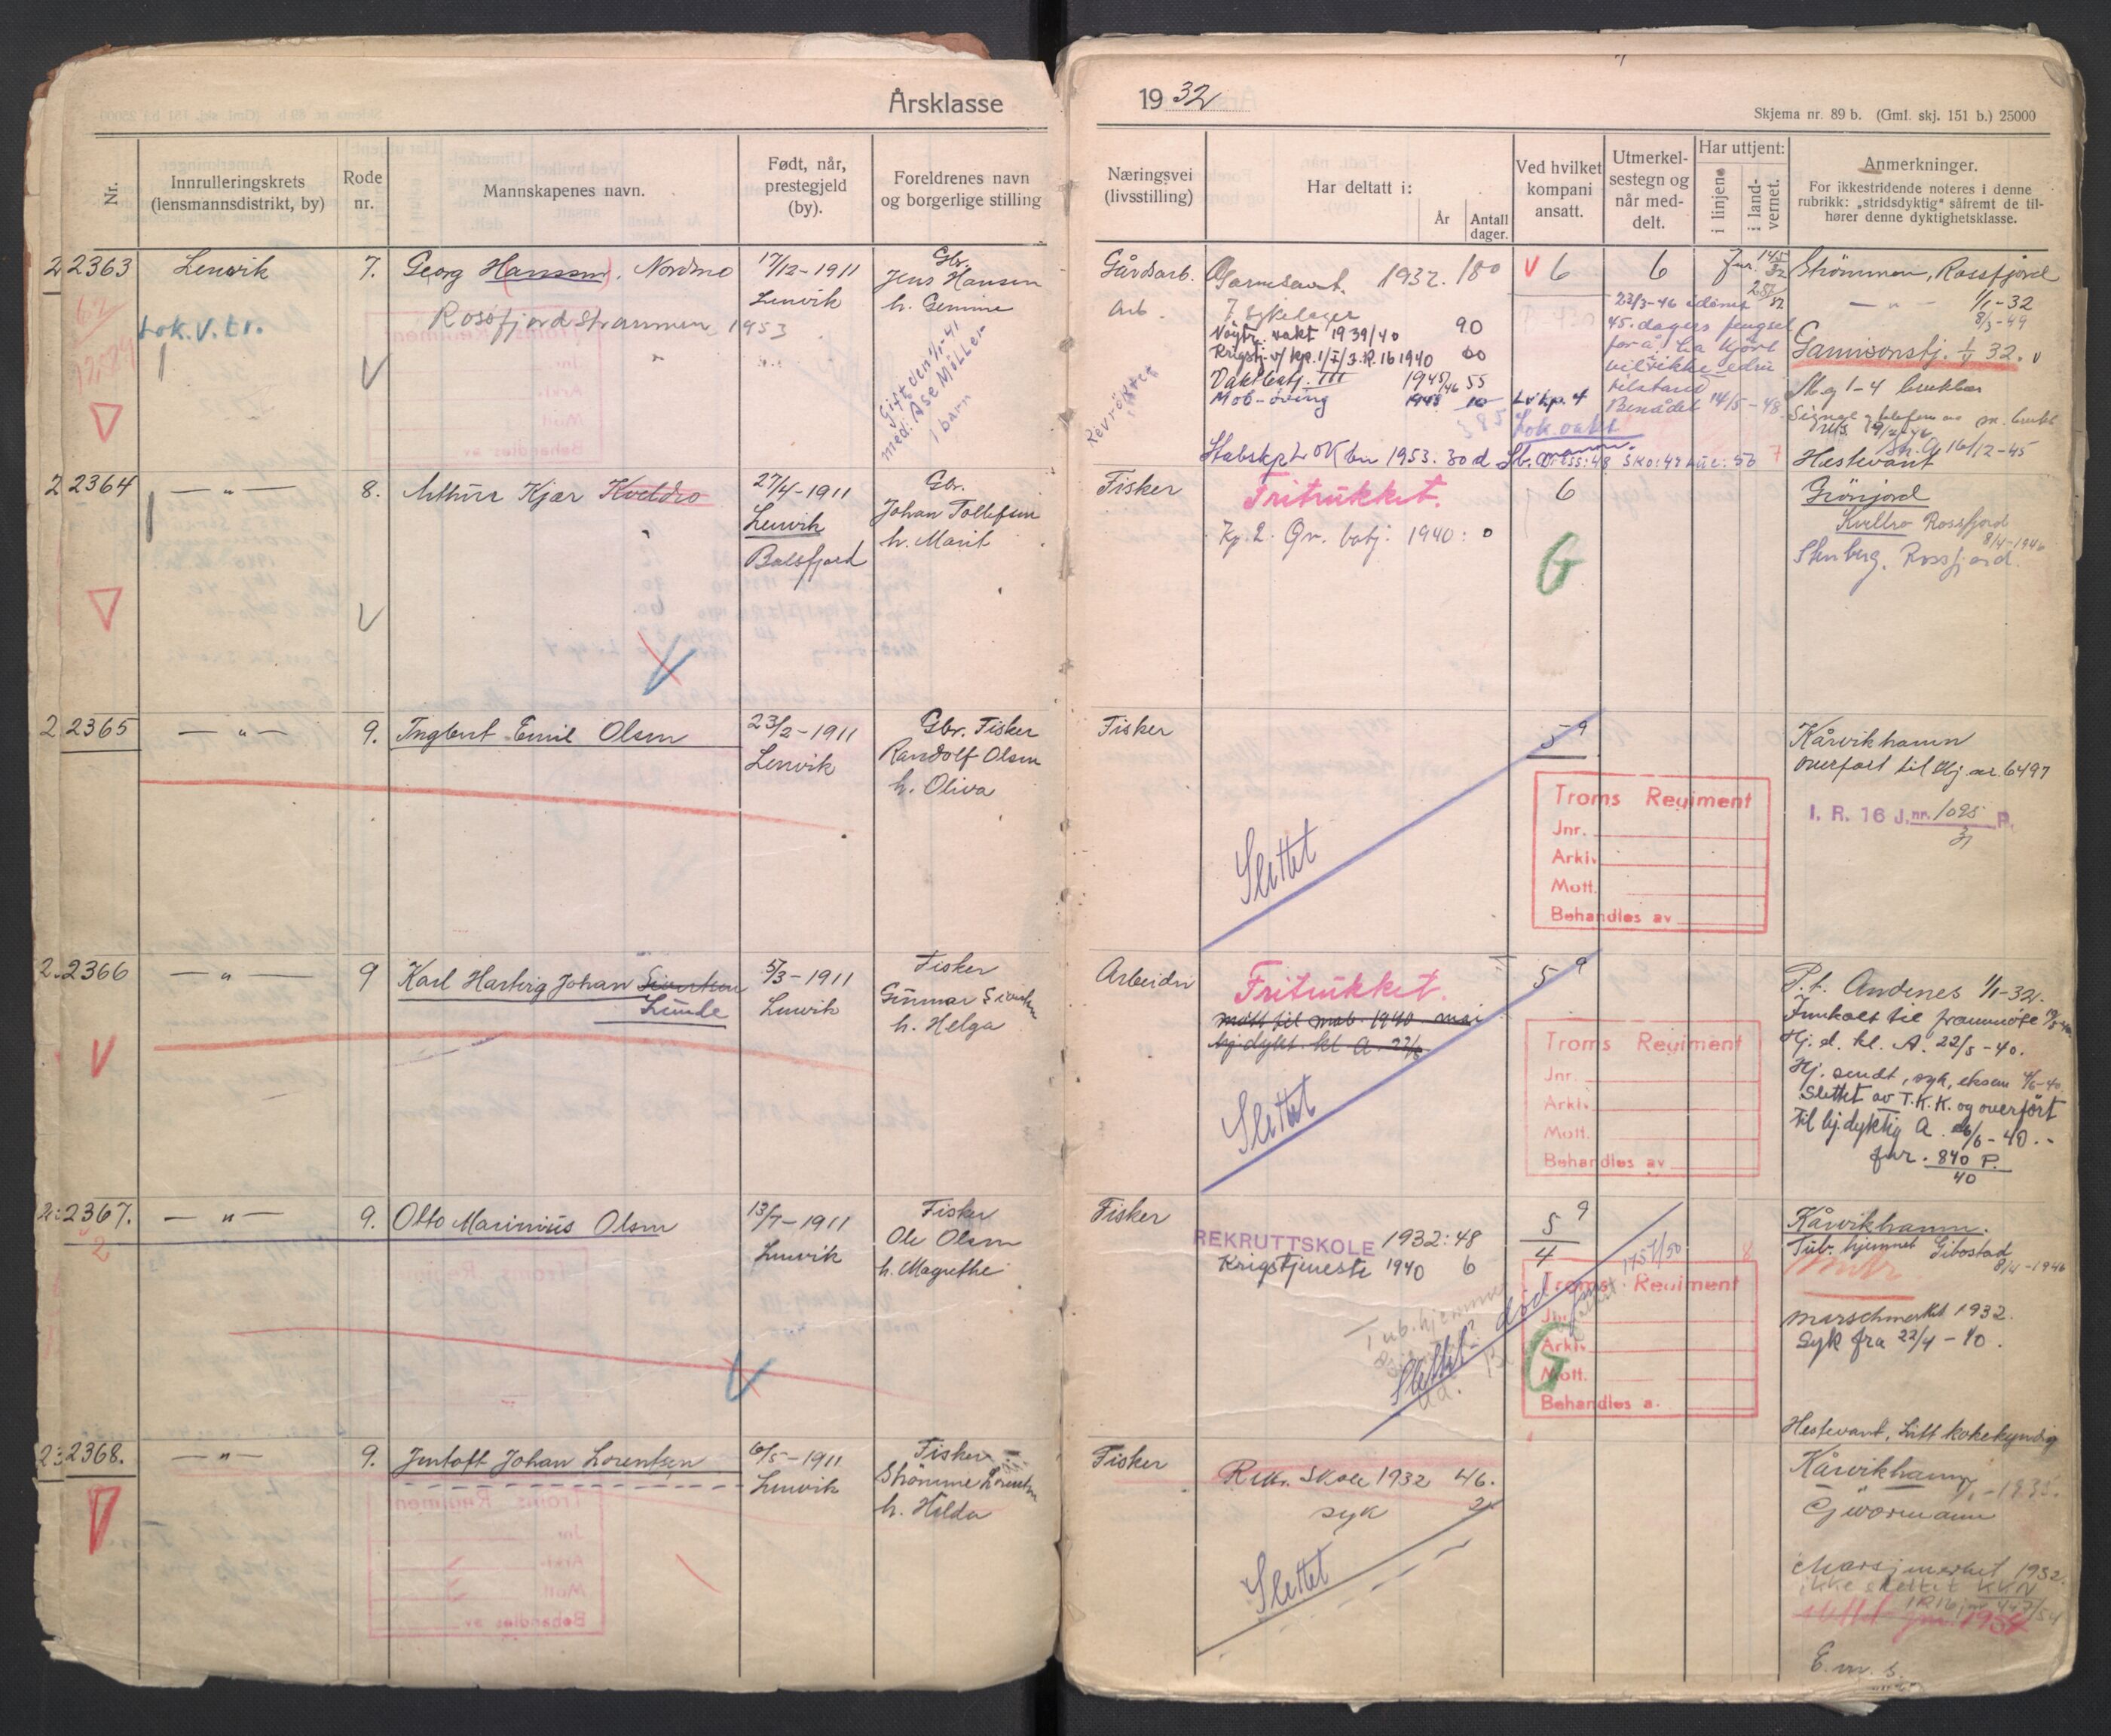 Årsklasse
1932
Skjema nr. 89 b. (Gml. skj. 151 b.) 25000
Nr.
Innrulleringskrets
(lensmannsdistrikt, by)
Rode
nr.
Mannskapenes navn.
Født, når,
prestegjeld
(by).
Foreldrenes navn
og borgerlige stilling
Næringsvei
(livsstilling)
Har deltatt i:
År
Antall
dager.
Ved hvilket
kompani
ansatt.
Utmerkel-
sestegn og
når med-
delt.
Har uttjent:
i linjen
i land-
vernet.
Anmerkninger.
For ikkestridende noteres i denne
rubrikk: „stridsdyktig" såfremt de til-
hører denne dyktighetsklasse.
2363
Lenvik
7.
Georg Hanssen, Nordmo
Rossfjordstraumen, 1953
Lok. v. tr.
17/12-1911
Lenvik
Gbr.
Jens Hansen
h. Gemine
Gift den 1/1-41
med: Åse Möller
1 barn
Gårdsarb.
Arb.
Revrökter
Garnisont. 1932. 180
I sykelager
Nøytr. vakt 1939/40 90
Krigstj. v/ kp. 1/I/3. R. 16 1940 60
Vaktbatj. III 1945/46 55
Mob-öving 1948 10
385
Stabskp LvOK bn 1953. 30 d
V 6
Lv kp. 4
Lok. vakt
6
22/3-46 idömt
45. dagers fengsel
for å ha kjørt
bil i ikke edru
tilstand
Benådet 14/5-48.
Sko: 42 Lue: 56
7
Strömmen, Rossfjord
— " — 1/1-32
8/3-49
Garnisonstj. 1/V 32. v
Mg 1-4 brukbar
Sk. A 16/12-45
Hestevant
2364
— " —
8.
Arthur Kjær Kveldro
27/4-1911
Lenvik
Balsfjord
Gbr.
Johan Tollefsen
h. Marit
Fisker
Fritrukket.
Kp. 2. Øv. batj. 1940: 0
6
G
Grönjord
Kveldro Rossfjord
8/4-1946
Stenberg, Rossfjord.
2365
— " —
9.
Ingbert Emil Olsen
23/2-1911
Lenvik
Gbr. Fisker
Randolf Olsen
h. Oliva
Fisker
Slettet
5 9
Troms Regiment
Jnr.
Arkiv
Mott.
Behandles av
Kårvikhamn
overført til Hj. nr. 6497
I. R. 16 J.nr. 1095 P.
31
2366
— " —
9
Karl Hartvig Johan Sivertsen
Lunde
5/3-1911
Lenvik
Fisker
Gunnar Sivertsen
h. Helga
Arbeider
Fritrukket.
møtt til mob. 1940 mai
hj.dykt. kl. A. 22/5
Slettet
5 9
Troms Regiment
Jnr.
Arkiv.
Mott.
Behandles av
P.t. Andenes 1/1-32.
Innkalt til frammöte
Hj. d. kl. A. 22/5-40.
Hj. sendt, syk, eksem 4/6-40
Slettet av T.K.K. og overført
til hj.dyktig A. 26/6-40.-
Jnr. 840 P.
40
2367.
2
— " —
9.
Otto Marinius Olsen
13/7-1911
Lenvik
Fisker
Ole Olsen
h. Magrethe
Fisker
REKRUTTSKOLE 1932: 48
Krigstjeneste 1940 6
Tub.hjemmet
Slettet död
5 9
4
Troms Regiment
Jnr.
Arkiv.
Mott.
Behandles a.
G
8
Kårvikhamn.
Tub. hjemmet Gibostad
8/4-1946
marschmerket 1932.
Syk fra 22/4-40.
2368.
— " —
9.
Jentoft Johan Lorentsen
6/5-1911
Lenvik
Fisker
Strömme Lorentsen
h. Hilda
Fisker
Rekr. Skole 1932 46.
syk 2
Slettet
Hestevant, Litt kokekyndig
Kårvikhamn
Marsjmerket 1932.
ikke slettet KKN
IR16 jnr 447/54
E. m. s.